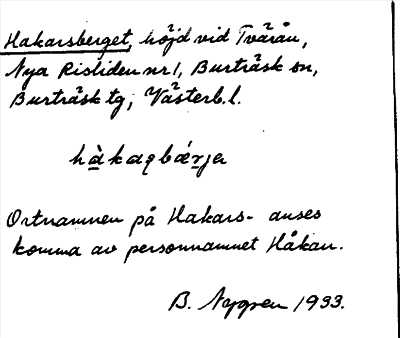 Hakarsberget, höjd vid Tvärån,
Nya Risliden nr 1, Burträsk sn,
Burträsk tg, Västerb. l.
hàkaqbǽrje
Ortnamnen på Hakars- anses
komma av personnamnet Håkan.
B. Nygren 1933.